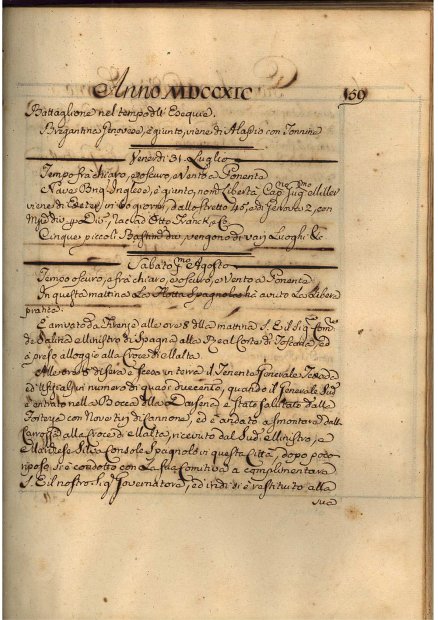 Anno MDCCXIC
130
Battaglione nel tempo dell' Esequie.
Brigantino Genovese, è giunto, viene di Alassio con Tonnina
Venerdi 31. Luglio
Tempo frà chiaro, e oscuro, e Vento a Ponente
Nave Inglese, è giunto, nom.ta Libertà Cap.no Miller
viene di Exeter, in 60 giorni, dallo stretto 45, e di Genova 2, con
Otto Franck, e C.
Cinque piccoli Bastim.ti div. vengono di varj Luoghi &c
Sabato p.mo Agosto
Tempo oscuro, e frà chiaro, e oscuro, e Vento a Ponente
In questa mattina La Flotta Spagnola hà avuto La Libera
pratica.
È arrivato da Firenze alle ore 8 della mattina S. E. il Sig.
de Salina e Ministro di Spagna alla Real Corte di Toscana, ed
à preso alloggio alla Croce di Malta.
Alle ore 8 di sera è sceso in terra il Tenente Generale
ed Uffizialj in numero di quasi duecento, quando il Generale Sud.o
è entrato nella Bocca della Darsena è stato salutato dalla
Fortezza con Nove tirj di Cannone, ed è andato a smontare dalla
Carrozza alla Croce di Malta, ricevuto dal Sud.o Ministro, e
e Marchese Silva Console Spagnolo in questa Città, dopo poco
riposo si è condotto con La sua Comitiva a complimentare
S. E. il nostro Sig. Governatore, ed indi si è restituito alla
sua